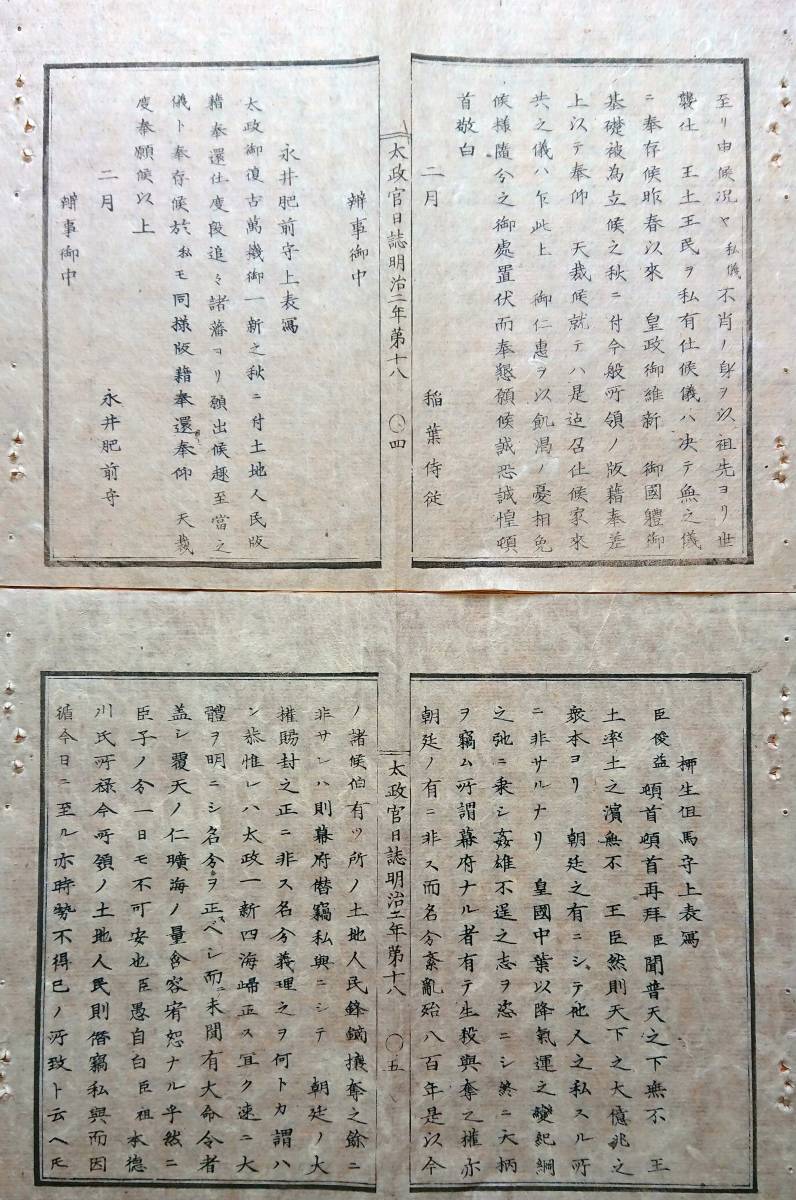 至リ由候況ヤ私儀不肖ノ身ヲ以祖先ヨリ世
襲仕 王土王民ヲ私有仕候儀ハ决テ無之儀
ニ奉存候昨春以來 皇政御維新 御國體御
基礎被為立候之秋ニ付今般所領ノ版籍奉差
上以テ奉仰 天裁候就テハ是迠召仕候家來
共之儀ハ乍此上 御仁惠ヲ以飢渇ノ憂相免
候様随分之御處置伏而奉懇願候誠恐誠惶頓
首敬白
二月 稲葉侍従
辨事御中
永井肥前守上表寫
太政御復古萬機御一新之秋ニ付土地人民版
籍奉還仕度段追々諸藩ヨリ願出候趣至當之
儀ト奉存候於私モ同様版籍奉還奉仰 天裁
度奉願候以上
二月 永井肥前守
辨事御中
太政官日誌明治二年第十八 〇四
柳生但馬守上表寫
臣俊益頓首頓首再拜臣聞普天之下無不 王
土率土之濱無不 王臣然則天下之大億兆之
衆本ヨリ 朝廷之有ニシテ他人之私スル所
ニ非サルナリ 皇國中葉以降氣運之變紀綱
之弛ニ乗シ姦雄不逞之志ヲ恣ニシ終ニ天柄
ヲ竊ム所謂幕府ナル者有テ生殺與奪之権亦
朝廷ノ有ニ非ス而名分紊亂殆八百年是以今
ノ諸候伯有ツ所ノ土地人民鋒鏑攘奪之餘ニ
非サレハ則幕府僭竊私與ニシテ 朝廷ノ大
権賜封之正ニ非ス名分義理之ヲ何トカ謂ハ
ン恭惟レハ太政一新四海歸正ス宜ク速ニ大
體ヲ明ニシ名分ヲ正スヘシ而ニ未聞有大命令者
盖シ覆天ノ仁曠海ノ量含容宥恕ナル乎然ニ
臣子ノ分一日モ不可安也臣愚自白臣祖本德
川氏所禄今所領ノ土地人民則僭竊私與而因
循今日ニ至ル亦時勢不得已ノ所致ト云ヘ𪜈
太政官日誌明治二年第十八 〇五